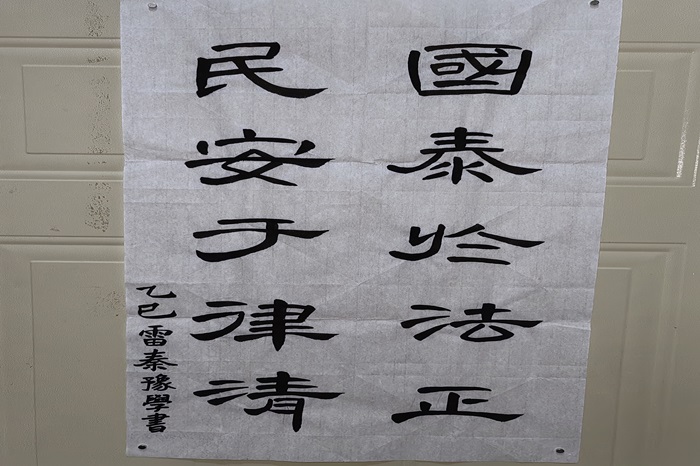 國泰於法正
民安于律清
乙巳雷秦豫學書